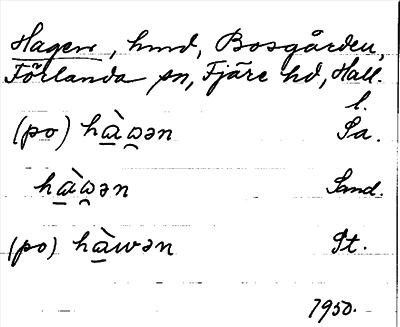 Hagen, hmd, Bosgården,
Förlanda sn, Fjäre hd, Hall.
l.
(po) hὰ̱w̯ən Sa.
hὰ̱w̯ən Sand.
(po) hὰ̱wən St.
1950.